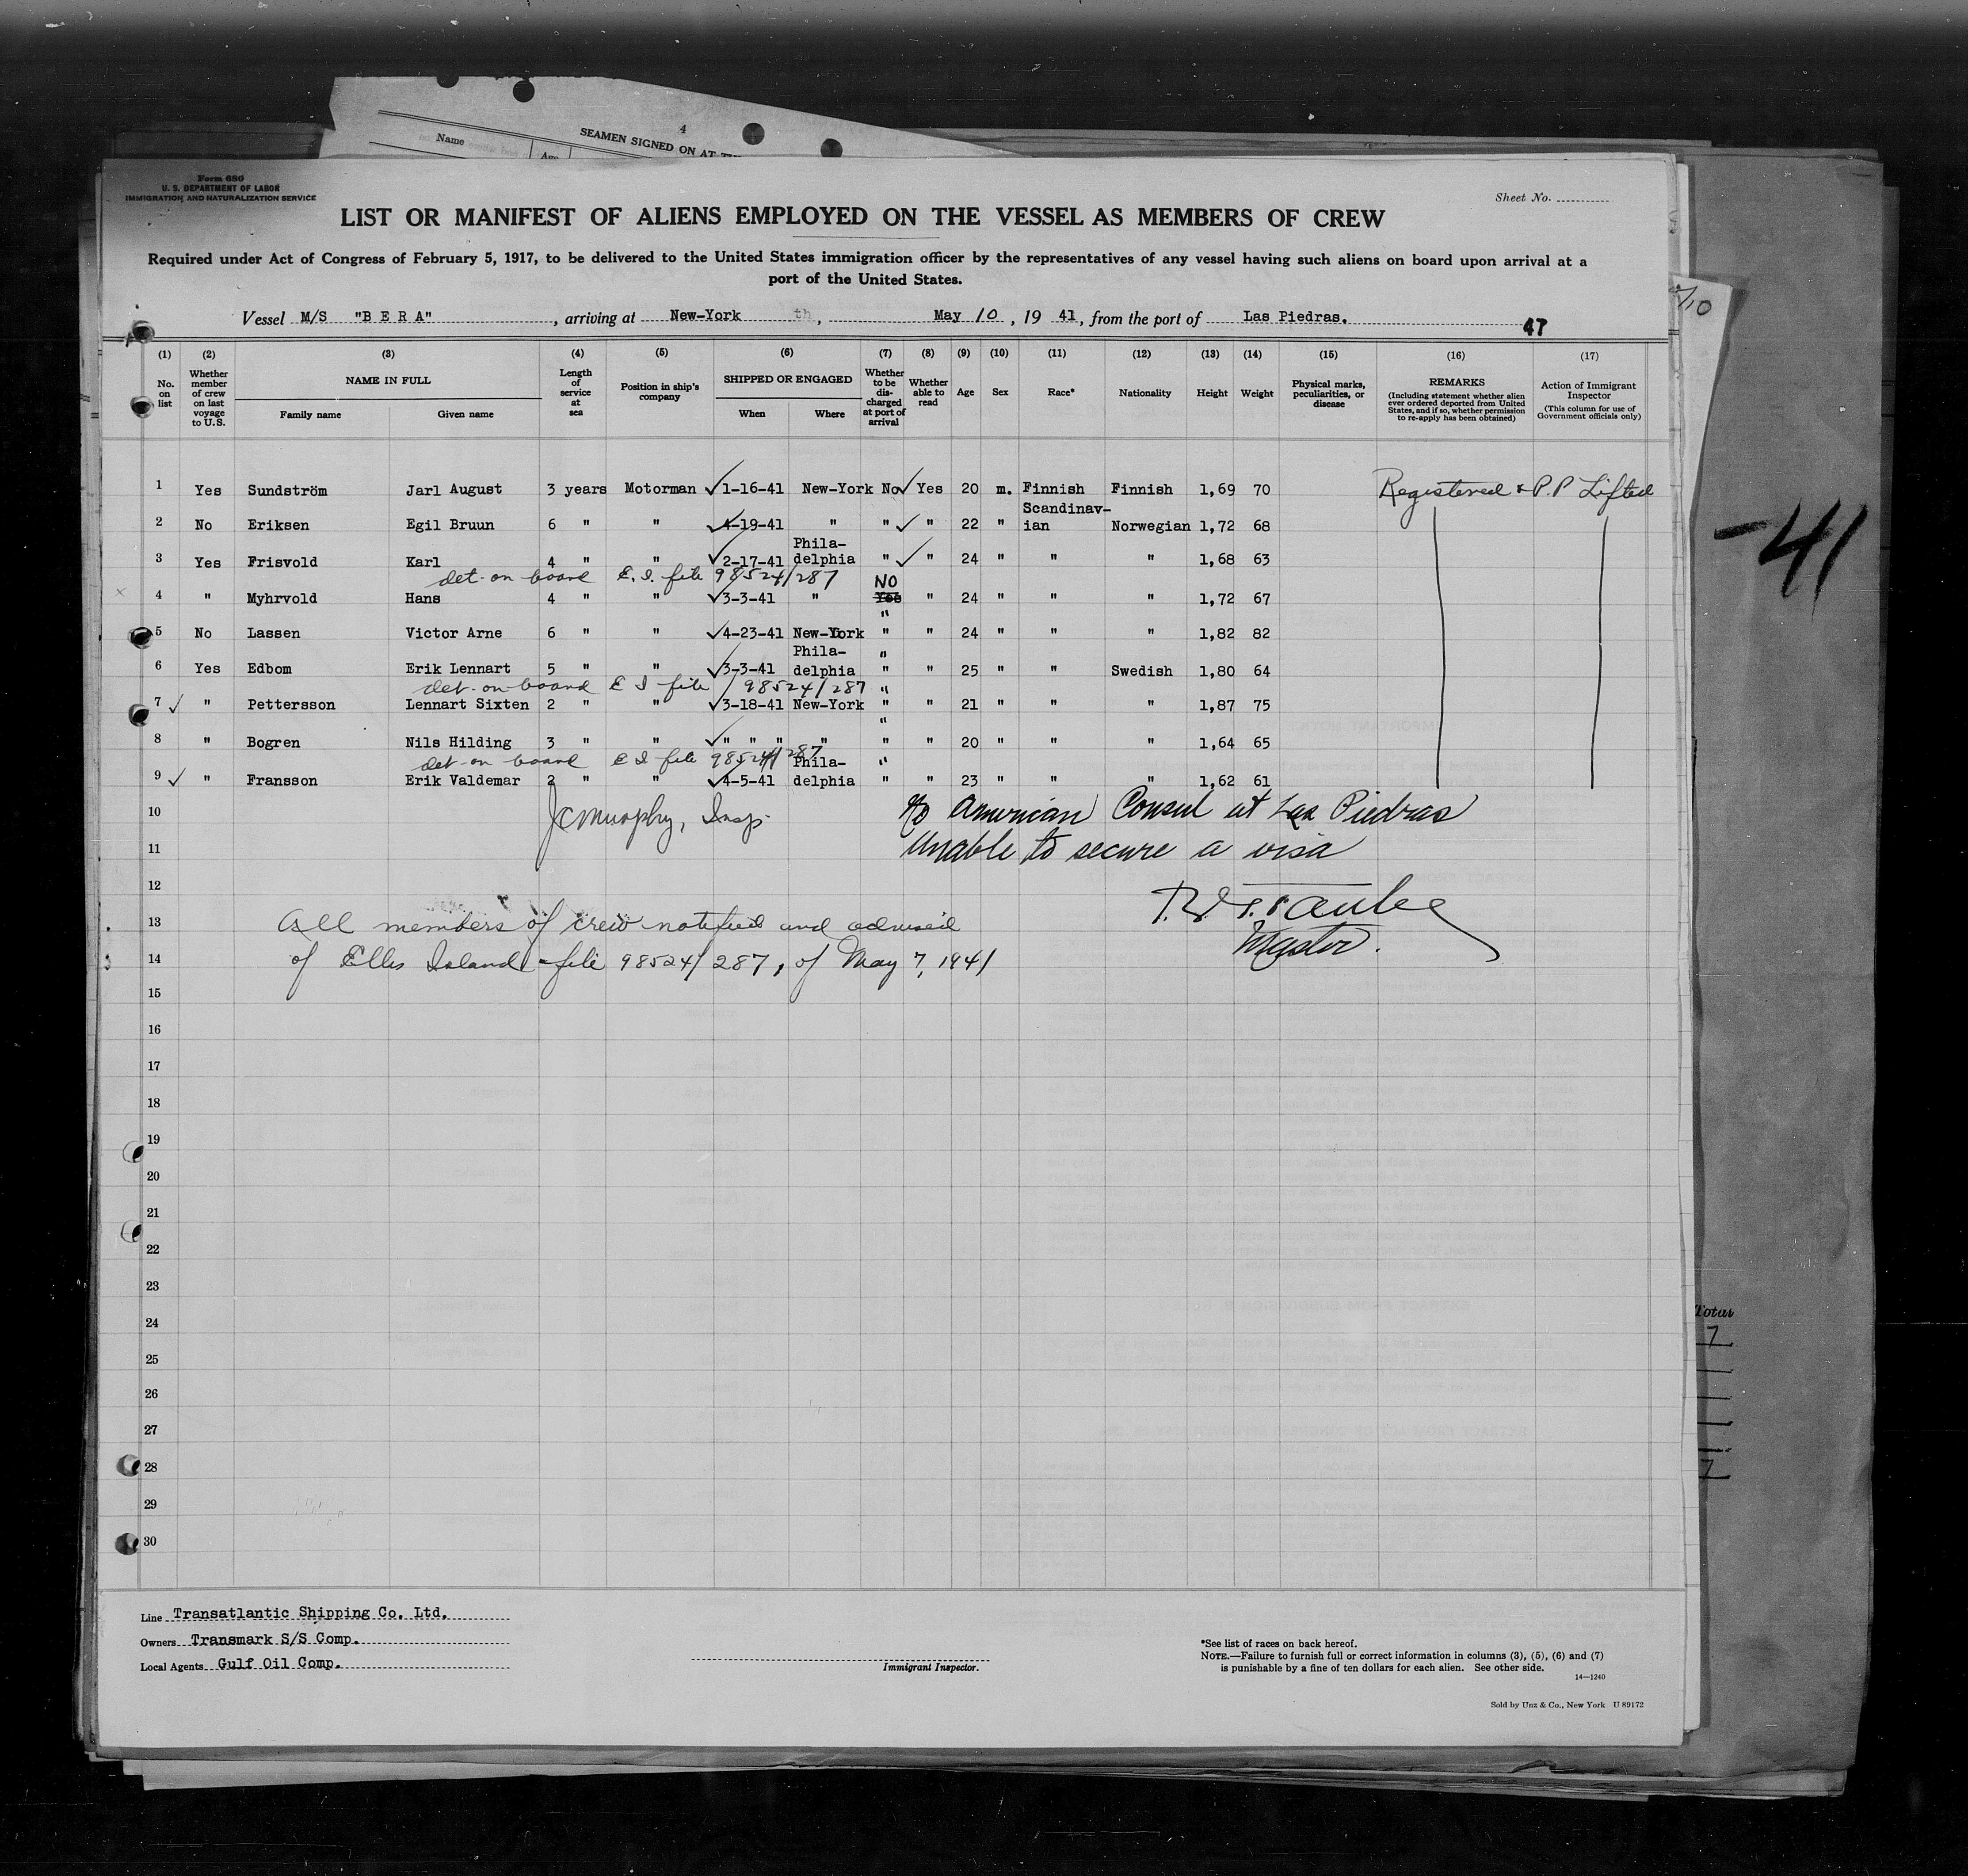 4
SEAMEN SIGNED ON AT
Name
Age
Form 680
U. S. DEPARTMENT OF LABOR
IMMIGRATION AND NATURALIZATION SERVICE
Sheet No.
LIST OR MANIFEST OF ALIENS EMPLOYED ON THE VESSEL AS MEMBERS OF CREW
Required under Act of Congress of February 5, 1917, to be delivered to the United States immigration officer by the representatives of any vessel having such aliens on board upon arrival at a
port of the United States.
Vessel M/S "B E R A" , arriving at New-York th, May 10 , 19 41, from the port of Las Piedras.
47
(1) (2) (3) (4) (5) (6) (7) (8) (9) (10) (11) (12) (13) (14) (15) (16) (17)
No. on list
Whether member of crew on last voyage to U.S.
NAME IN FULL
Family name Given name
Length of service at sea
Position in ship's company
SHIPPED OR ENGAGED
When Where
Whether to be discharged at port of arrival
Whether able to read
Age Sex Race* Nationality Height Weight
Physical marks, peculiarities, or disease
REMARKS
(Including statement whether alien ever ordered deported from United States, and if so, whether permission to re-apply has been obtained)
Action of Immigrant Inspector
(This column for use of Government officials only)
1 Yes Sundström Jarl August 3 years Motorman 1-16-41 New-York No Yes 20 m. Finnish Finnish 1,69 70 Registered & P.P Lifted
2 No Eriksen Egil Bruun 6 " " 4-19-41 " " " 22 " Scandinav-ian Norwegian 1,72 68
-41
3 Yes Frisvold Karl 4 " " 2-17-41 Phila-delphia " " 24 " " " 1,68 63
det. on board E. I. file 98524/287 NO
4 " Myhrvold Hans 4 " " 3-3-41 " Yes " 24 " " " 1,72 67
5 No Lassen Victor Arne 6 " " 4-23-41 New-York " " 24 " " " 1,82 82
6 Yes Edbom Erik Lennart 5 " " 3-3-41 Phila-delphia " " 25 " " Swedish 1,80 64
det. on board E I file 98524/287 "
7 " Pettersson Lennart Sixten 2 " " 3-18-41 New-York " " 21 " " " 1,87 75
8 " Bogren Nils Hilding 3 " " " " " " " " 20 " " " 1,64 65
det on board E I file 98524/287 "
9 " Fransson Erik Valdemar 2 " " 4-5-41 Phila-delphia " " 23 " " " 1,62 61
10 JC Murphy, Insp. No American Consul at Las Piedras
11 Unable to secure a visa
12
13 All members of crew notified and advised
Master.
14 of Ellis Island file 98524/287, of May 7, 1941
15
16
17
18
19
20
21
22
23
24
25
26
27
28
29
30
Total
7
7
Line Transatlantic Shipping Co. Ltd.
Owners Transmark S/S Comp.
Local Agents Gulf Oil Comp.
Immigrant Inspector.
*See list of races on back hereof.
NOTE.—Failure to furnish full or correct information in columns (3), (5), (6) and (7)
is punishable by a fine of ten dollars for each alien. See other side.
14—1240
Sold by Unz & Co., New York U 89172